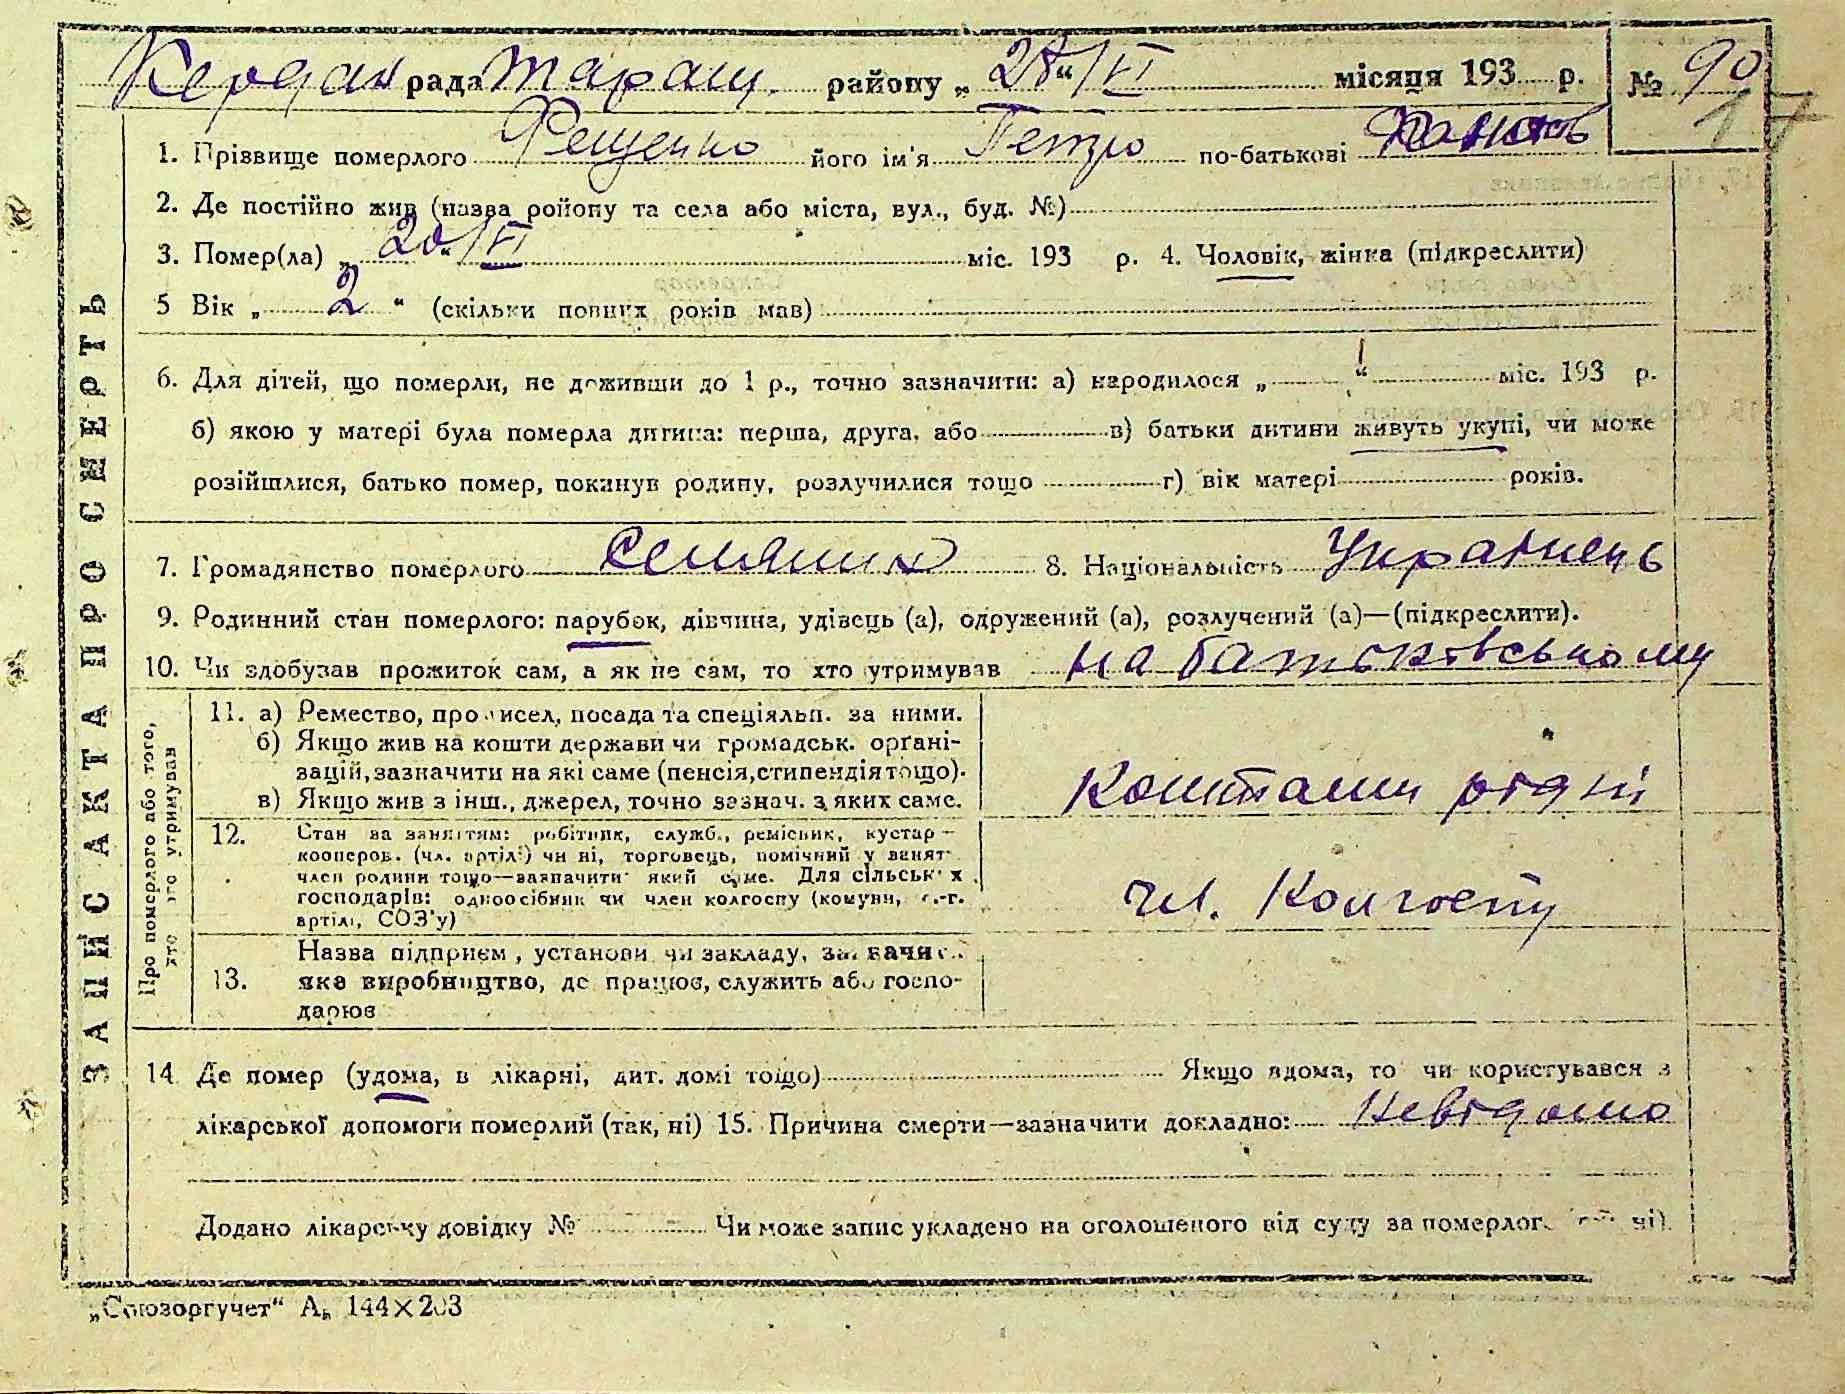 Кердан рада Таращ. району „ 28 “/VI місяця 193 р. № 90
17
1. Прізвище померлого Фещенко його ім'я Петро по-батькові
2. Де постійно жив (назва району та села або міста, вул., буд. №)
3. Помер(ла) „ 20 “/VI міс. 193 р. 4. Чоловік, жінка (підкреслити)
5 Вік „ 2 “ (скільки повних років мав)
6. Для дітей, що померли, не доживши до 1 р., точно зазначити: а) народилося „ “ міс. 193 р.
б) якою у матері була померла дитина: перша, друга, або в) батьки дитини живуть укупі, чи може
розійшлися, батько помер, покинув родину, розлучилися тощо г) вік матері років.
7. Громадянство померлого селянин 8. Національність Українець
9. Родинний стан померлого: парубок, дівчина, удівець (а), одружений (а), розлучений (а)—(підкреслити).
10. Чи здобував прожиток сам, а як не сам, то хто утримував на батьковському
ЗАПИС АКТА ПРО СМЕРТЬ
Про померлого або того,
хто його утримував
11. а) Ремество, промисел, посада та спеціяльн. за ними.
б) Якщо жив на кошти держави чи громадськ. органі-
зацій, зазначити на які саме (пенсія, стипендія тощо).
в) Якщо жив з інш., джерел, точно зазнач. з яких саме.
Коштами рідні
12. Стан за заняттям: робітник, служб., ремісник, кустар —
кооперов. (чл. артілі) чи ні, торговець, помічний у занят
член родини тощо—зазначити який саме. Для сільськ х
господарів: одноосібник чи член колгоспу (комуни, с.-г.
артілі, СОЗ'у)
чл. Колгоспу
13. Назва підприєм, установи чи закладу, зазначи
яке виробництво, де працює, служить або госпо-
дарює
14 Де помер (удома, в лікарні, дит. домі тощо) Якщо вдома, то чи користувався з
лікарської допомоги померлий (так, ні) 15. Причина смерти—зазначити докладно: Невідомо
Додано лікарську довідку № Чи може запис укладено на оголошеного від суду за померлог ні)
„Союзоргучет“ А₅ 144×203